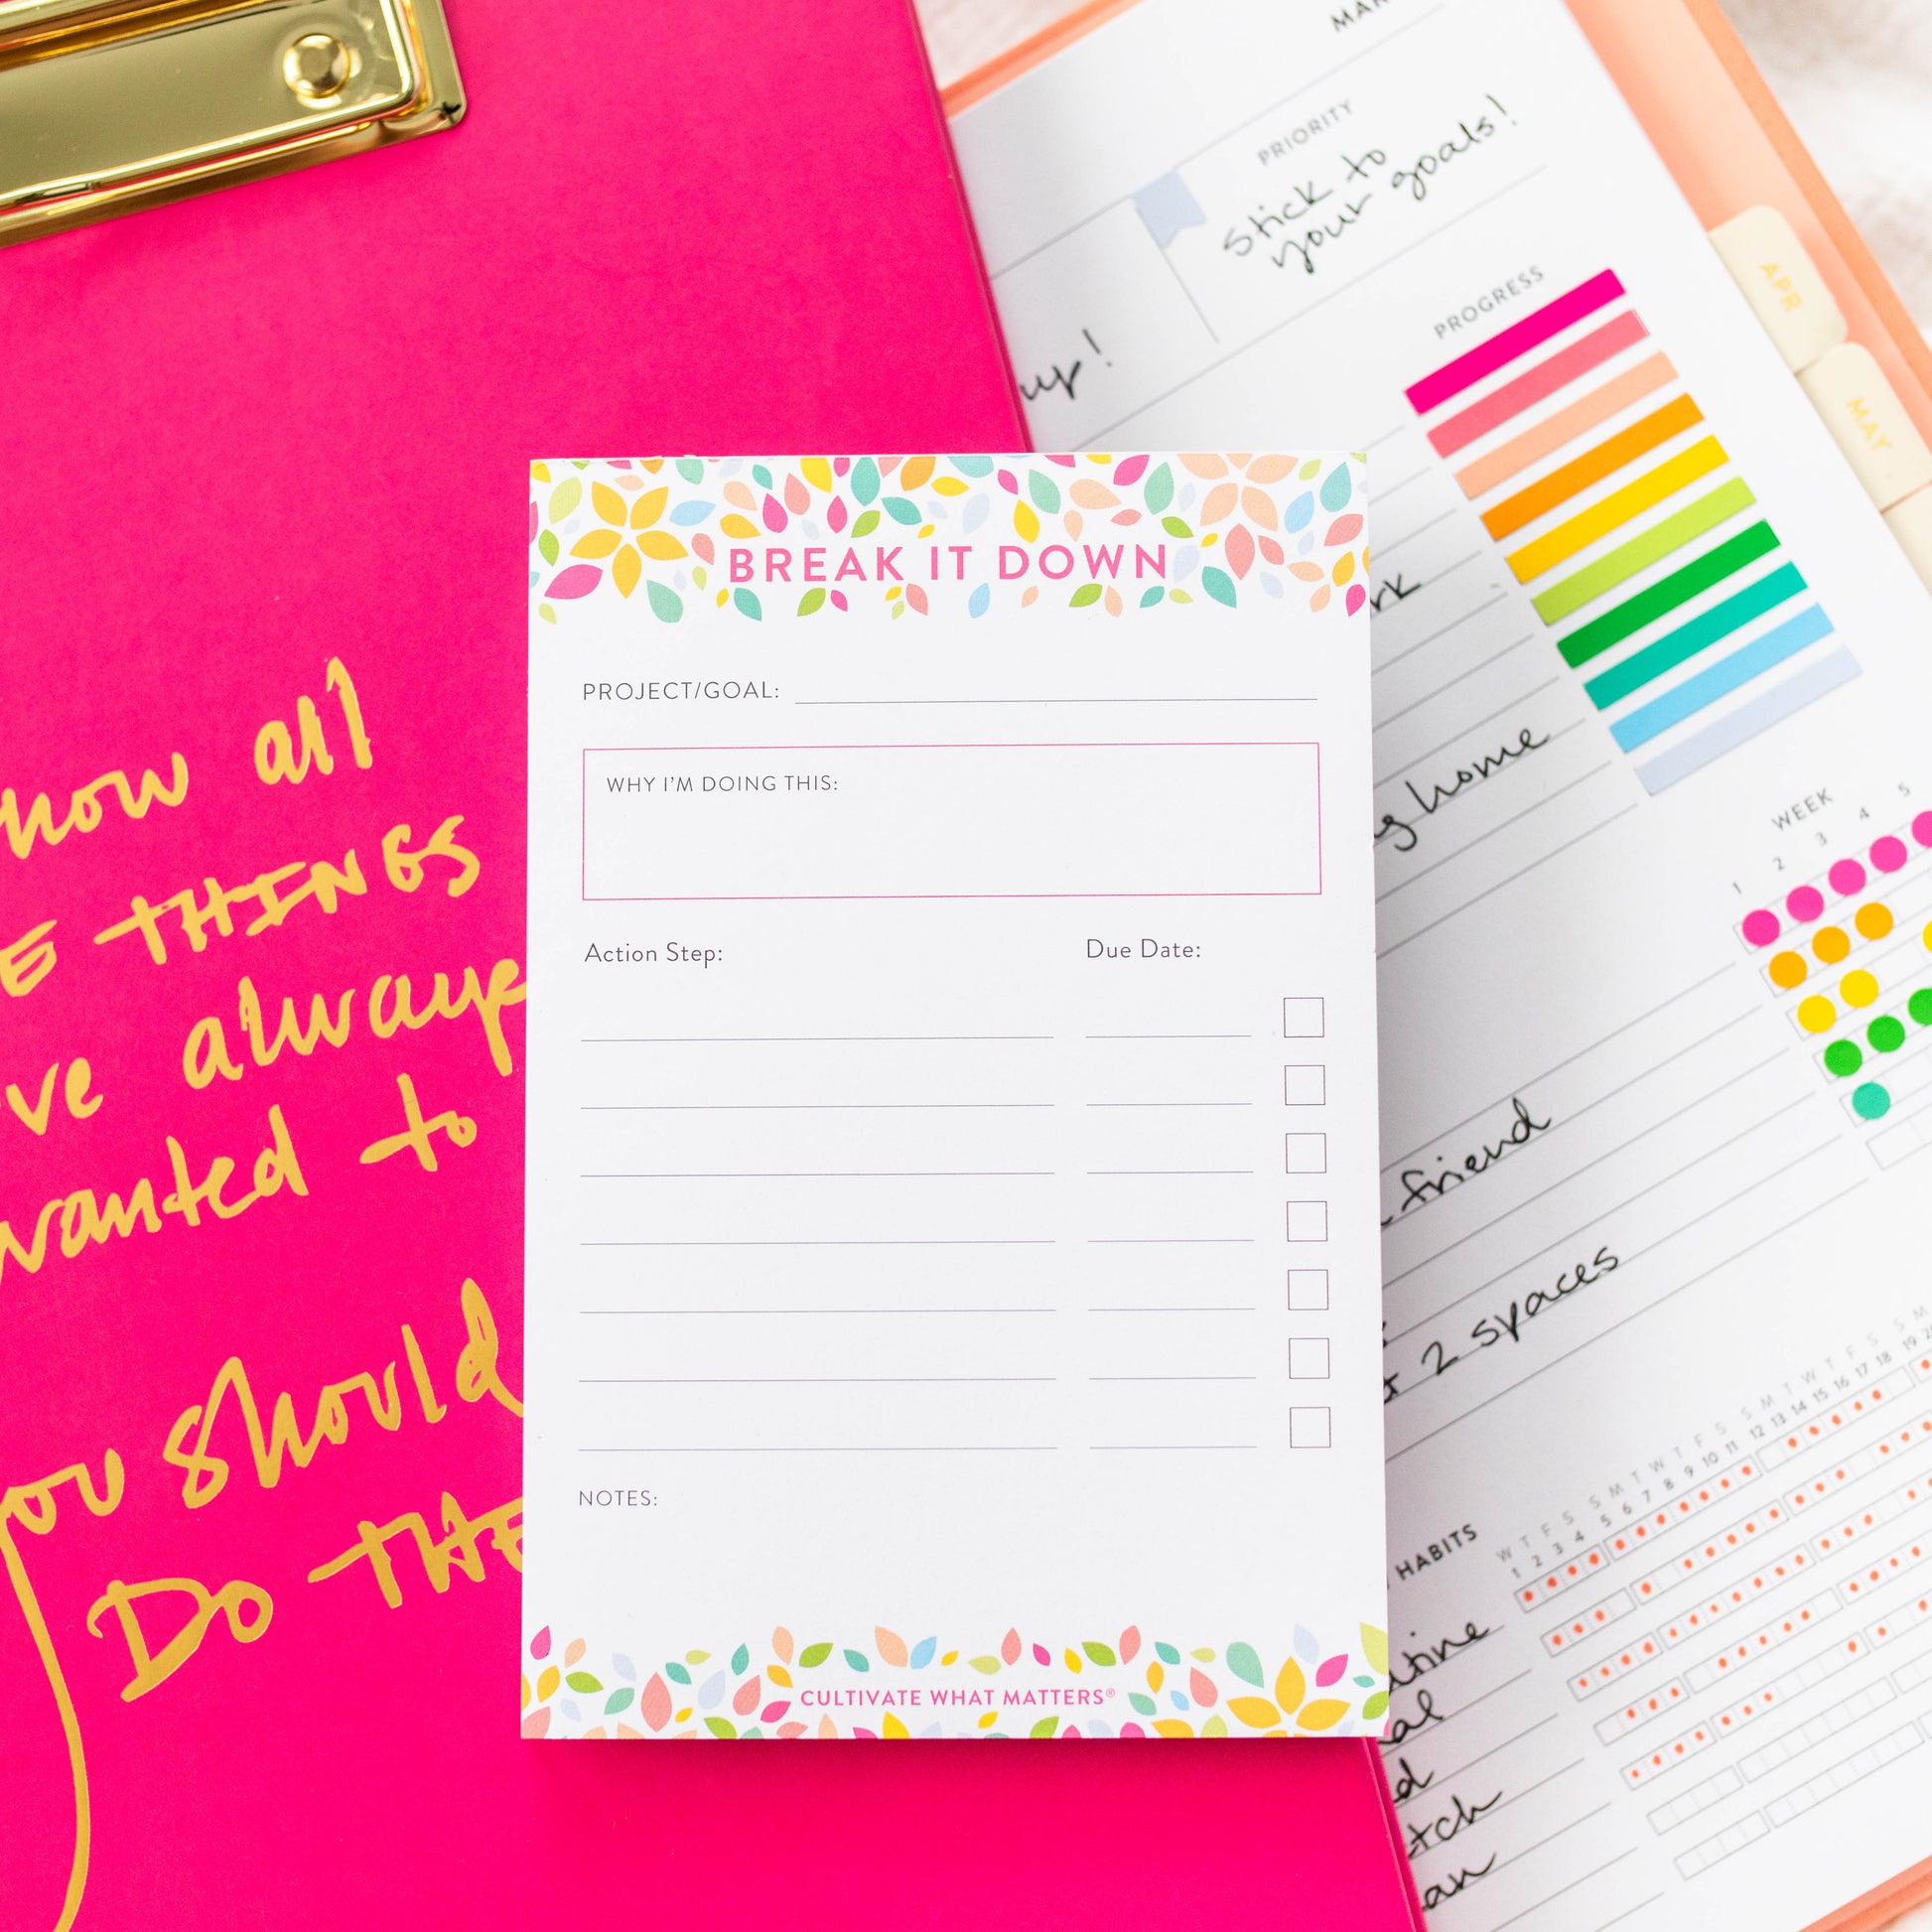 how all
THINGS
always
wanted to
you should
DO THE
BREAK IT DOWN
PROJECT/GOAL:
WHY I'M DOING THIS:
Action Step:
Due Date:
NOTES:
CULTIVATE WHAT MATTERS®
PRIORITY
Stick to
your goals!
up!
PROGRESS
APR
MAY
home
WEEK
1 2 3 4 5
friend
2 spaces
HABITS
W T F S S M T W T F S S M T W T F S S M
1 2 3 4 5 6 7 8 9 10 11 12 13 14 15 16 17 18 19